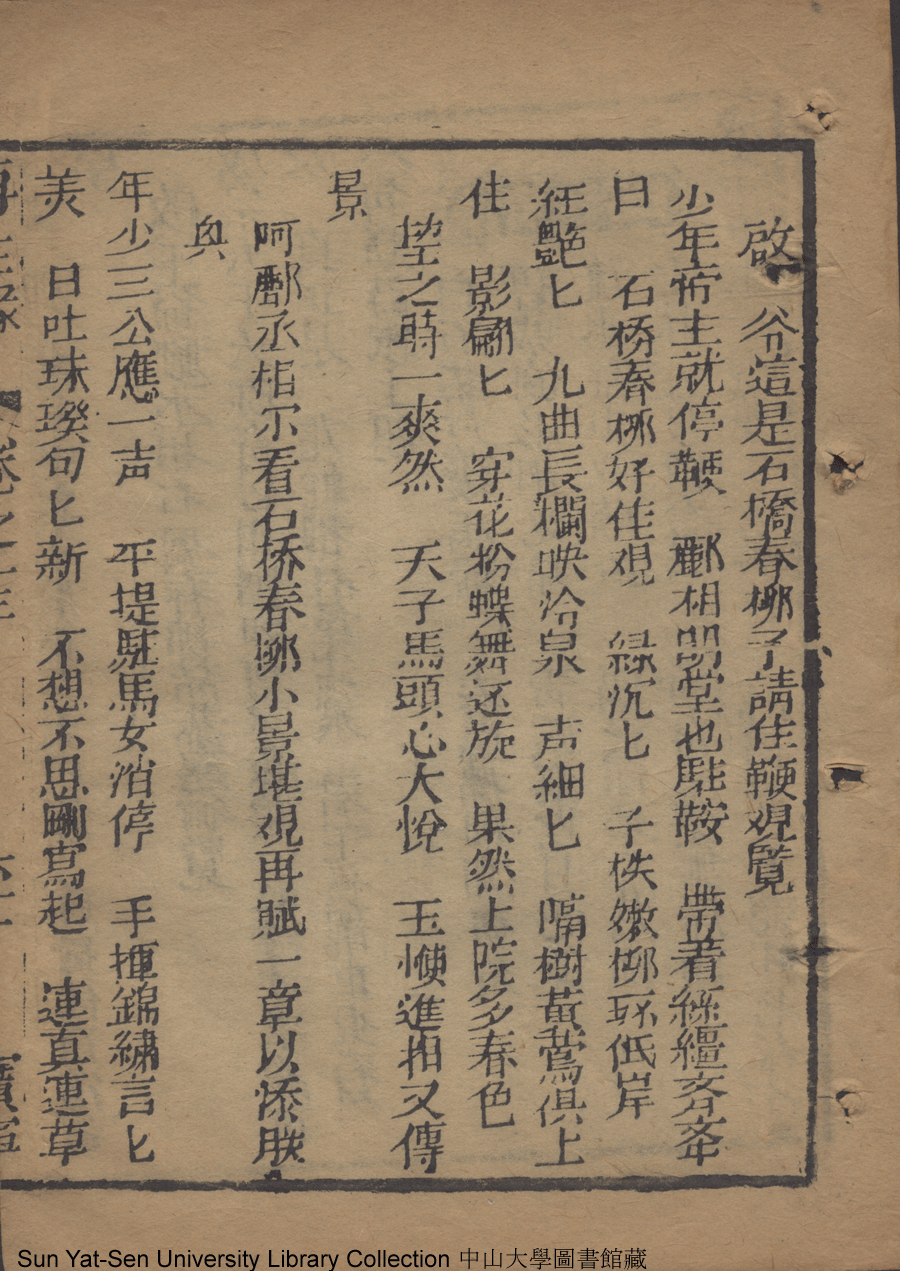 啟爷這是石橋春柳了請住鞭观覽
少年帝主就停鞭 酈相明堂也駐鞍 帶着絲繮齐齐
日 石桥春柳好佳观 緑沉匕 子株嫩柳环低岸
红艷匕 九曲長欄映冷泉 声細匕 隔樹黄鶯俱上
住 影翩匕 穿花粉蝶舞还旋 果然上院多春色
望之時一爽然 天子馬頭心大悅 玉 進相又傳
景
阿酈丞相尔看石桥春柳小景堪观再賦一章以添朕
興
年少三公應一声 平堤駐馬女 停 手揮錦繡言匕
美 日吐珠 句匕新 不想不思剛寫起 連真連草
再生緣 卷之十
Sun Yat-Sen University Library Collection 中山大學圖書館藏